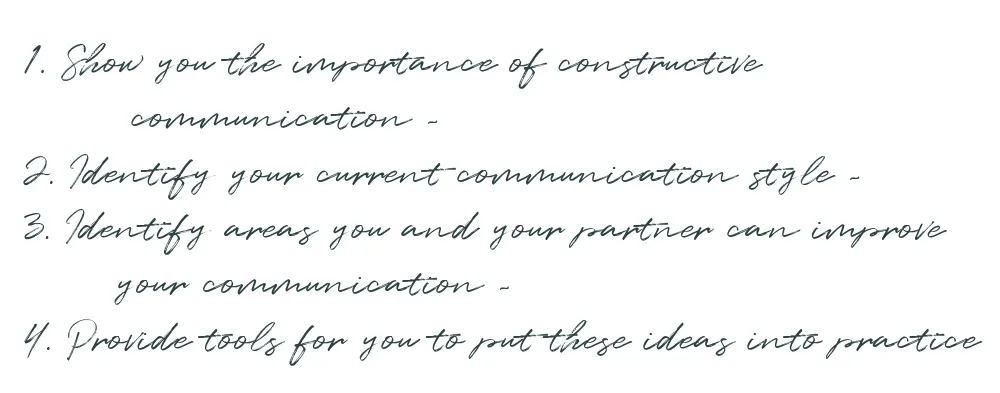 1. Show you the importance of constructive
communication -
2. Identify your current communication style -
3. Identify areas you and your partner can improve
your communication -
4. Provide tools for you to put these ideas into practice